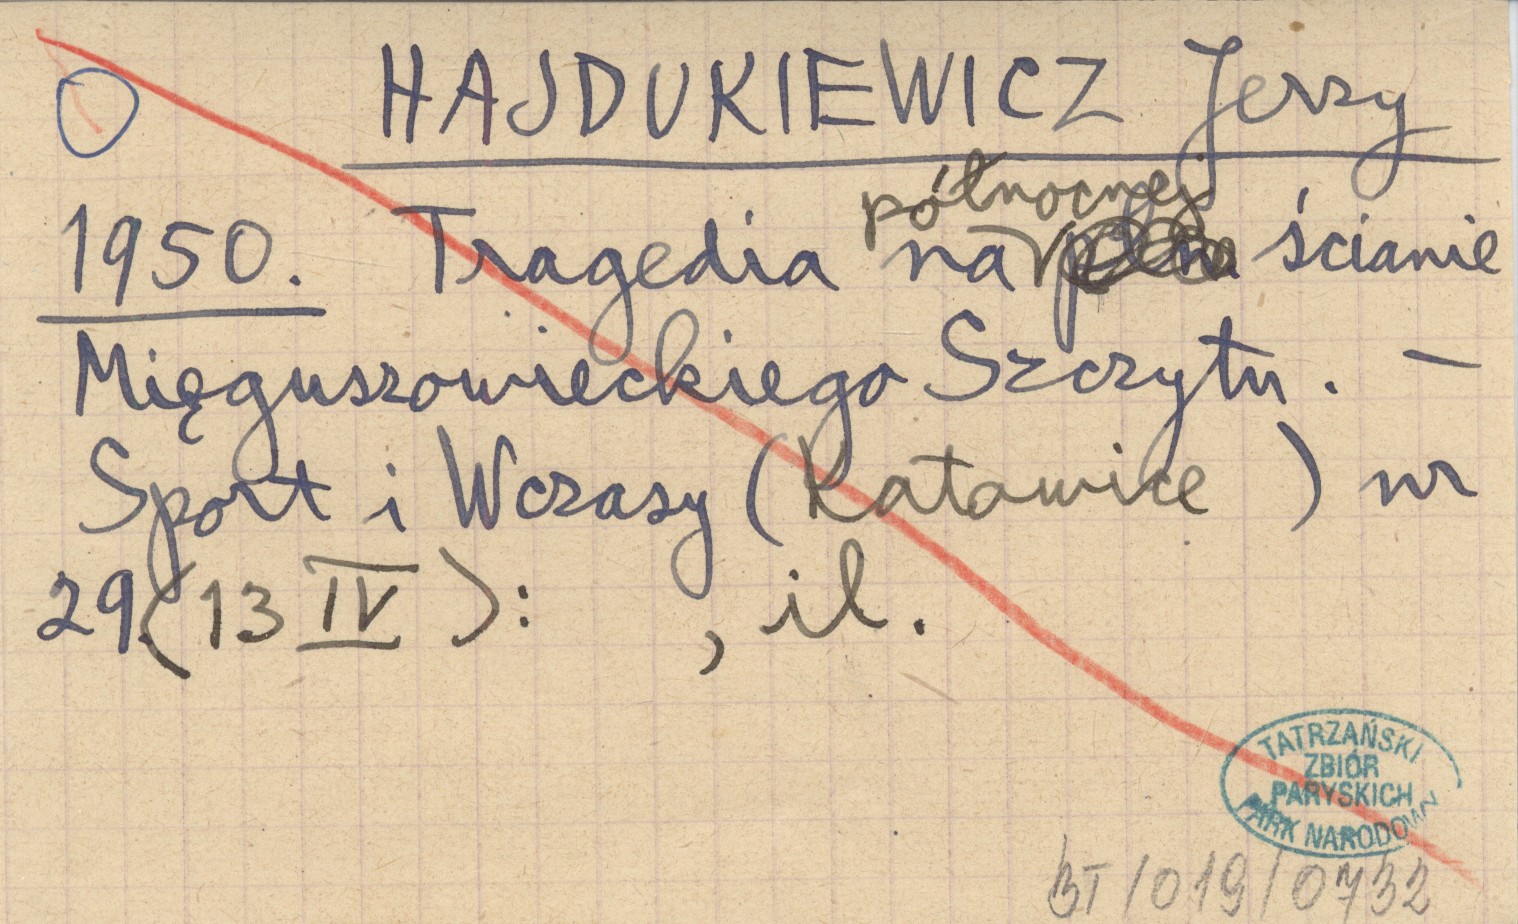 HAJDUKIEWICZ Jerzy
północnej
1950. Tragedia na ścianie
Mięguszowieckiego Szczytu. —
Sport i Wczasy (Katowice ) nr
29.(13 IV ): , il.
TATRZAŃSKI
ZBIÓR
PARYSKICH
PARK NARODOWY
BT/019/0732